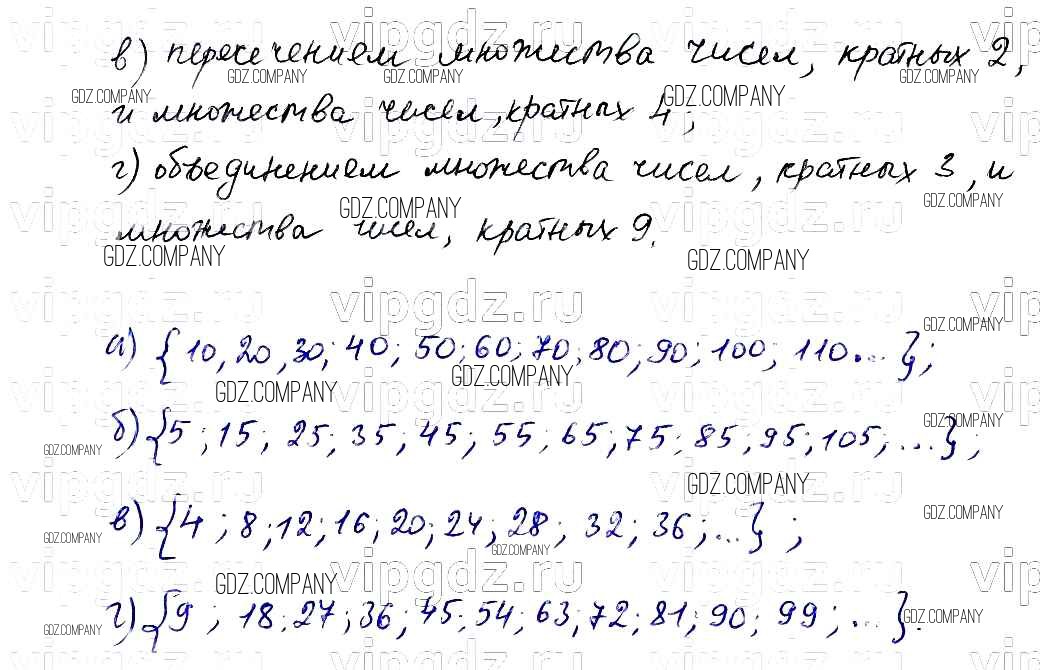 в) пересечением множества чисел, кратных 2,
и множества чисел, кратных 4;
г) объединением множества чисел, кратных 3, и
множества чисел, кратных 9.
а) {10, 20, 30; 40; 50; 60; 70; 80; 90; 100; 110... };
б) {5; 15; 25; 35; 45; 55; 65; 75; 85; 95; 105; ...};
в) {4; 8; 12; 16; 20; 24; 28; 32; 36; ...};
г) {9; 18; 27; 36; 45; 54; 63; 72; 81; 90; 99; ... }.
vipgdz.ru
GDZ.COMPANY